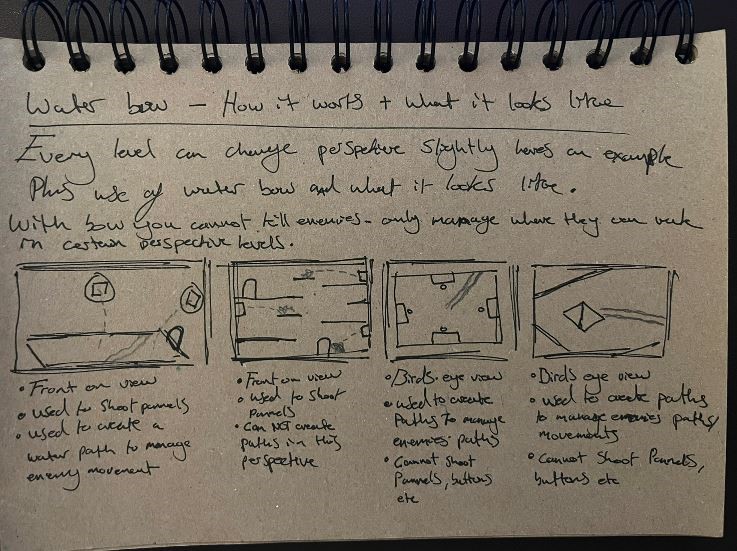 Water bow - How it works + What it looks like
Every level can change perspective slightly heres an example
Plus use of water bow and what it looks like.
With bow you cannot kill enemies - only manage where they can walk
in certain perspective levels.
• Front on view
• used to shoot pannels
• used to create a
water path to manage
enemy movement
• Front on view
• used to shoot
Pannels
• Can NOT create
paths in this
perspective
• Birds eye view
• used to create
Paths to manage
enemies paths
• Cannot shoot
Pannels, buttons
etc
• Birds eye view
• used to create paths
to manage enemies paths/
movements
• Cannot shoot Pannels,
buttons etc